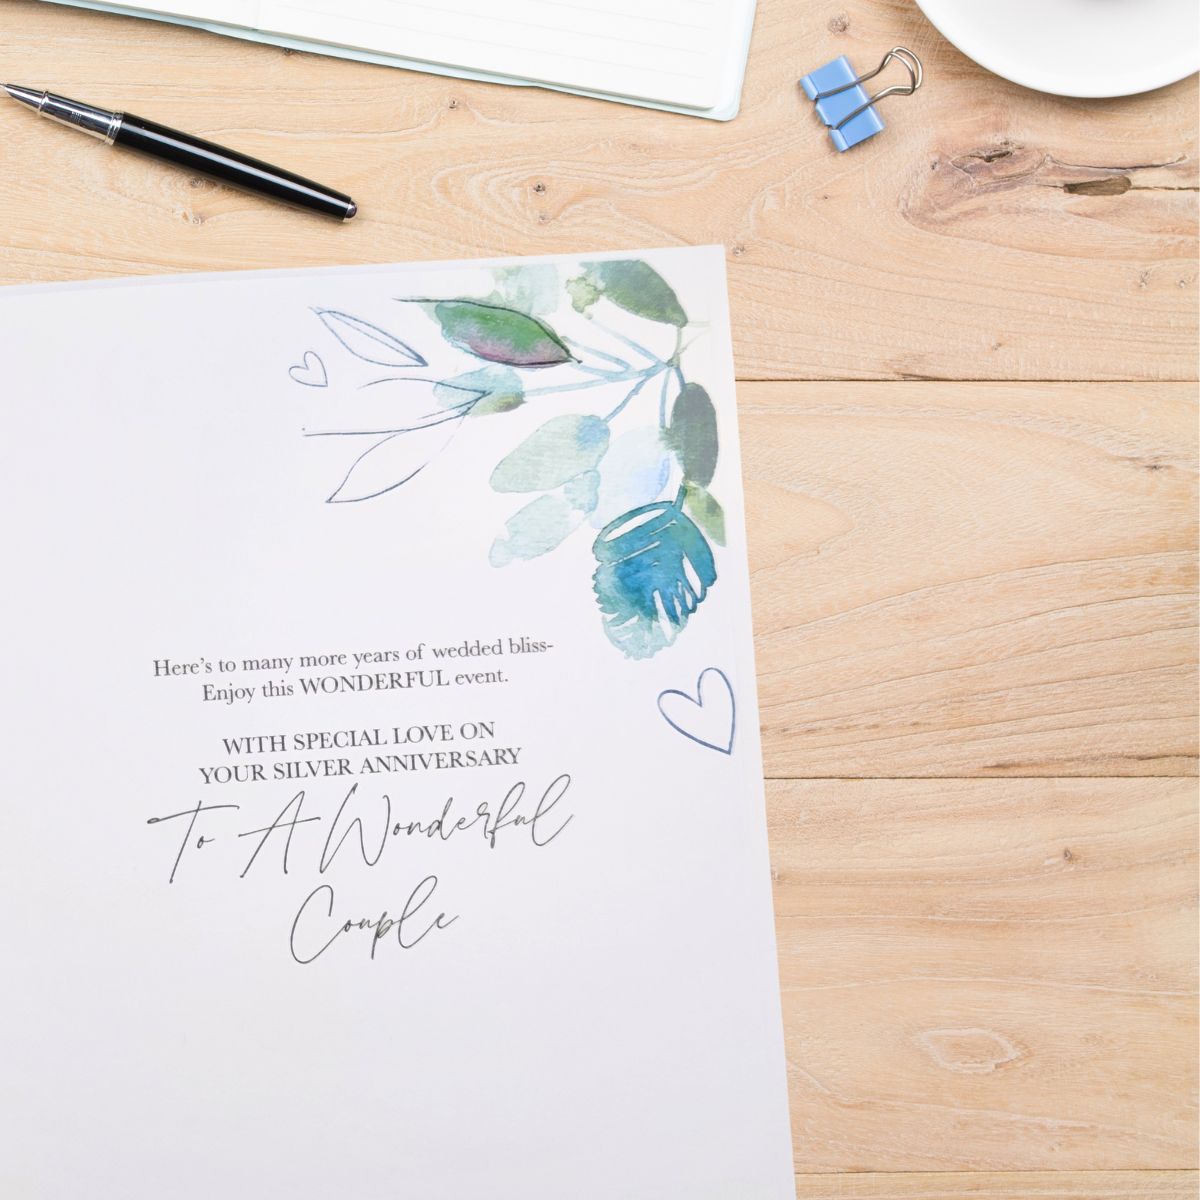 Here's to many more years of wedded bliss-
Enjoy this WONDERFUL event.
WITH SPECIAL LOVE ON
YOUR SILVER ANNIVERSARY
To A Wonderful
Couple